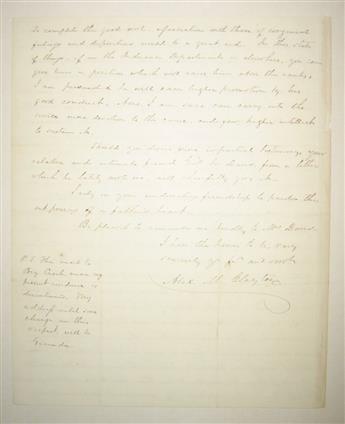 To complete the good work. Association with those of congenial
feelings and dispositions would to a great end. In this state
of things, if in the Ordnance Department or elsewhere, you can
give him a position which will raise him above the ranks,
I am persuaded he will earn higher promotion by his
good conduct. None, I am sure can carry into the
service more devotion to the cause, and few higher intellect
to sustain it.
Should you desire more important testimony your
relation and intimate friend
which he lately wrote me, will cheerfully give it.
I rely on your enduring friendship to pardon this
outpouring of a father's heart.
Be pleased to remember me kindly to Mrs Davis
I have the honor to be, very
sincerely yr fr and svt
Alex M. Clayton
P.S. The mail to
my
present residence is
discontinued. My
address until some
change in this
respect, will be
Grenada.